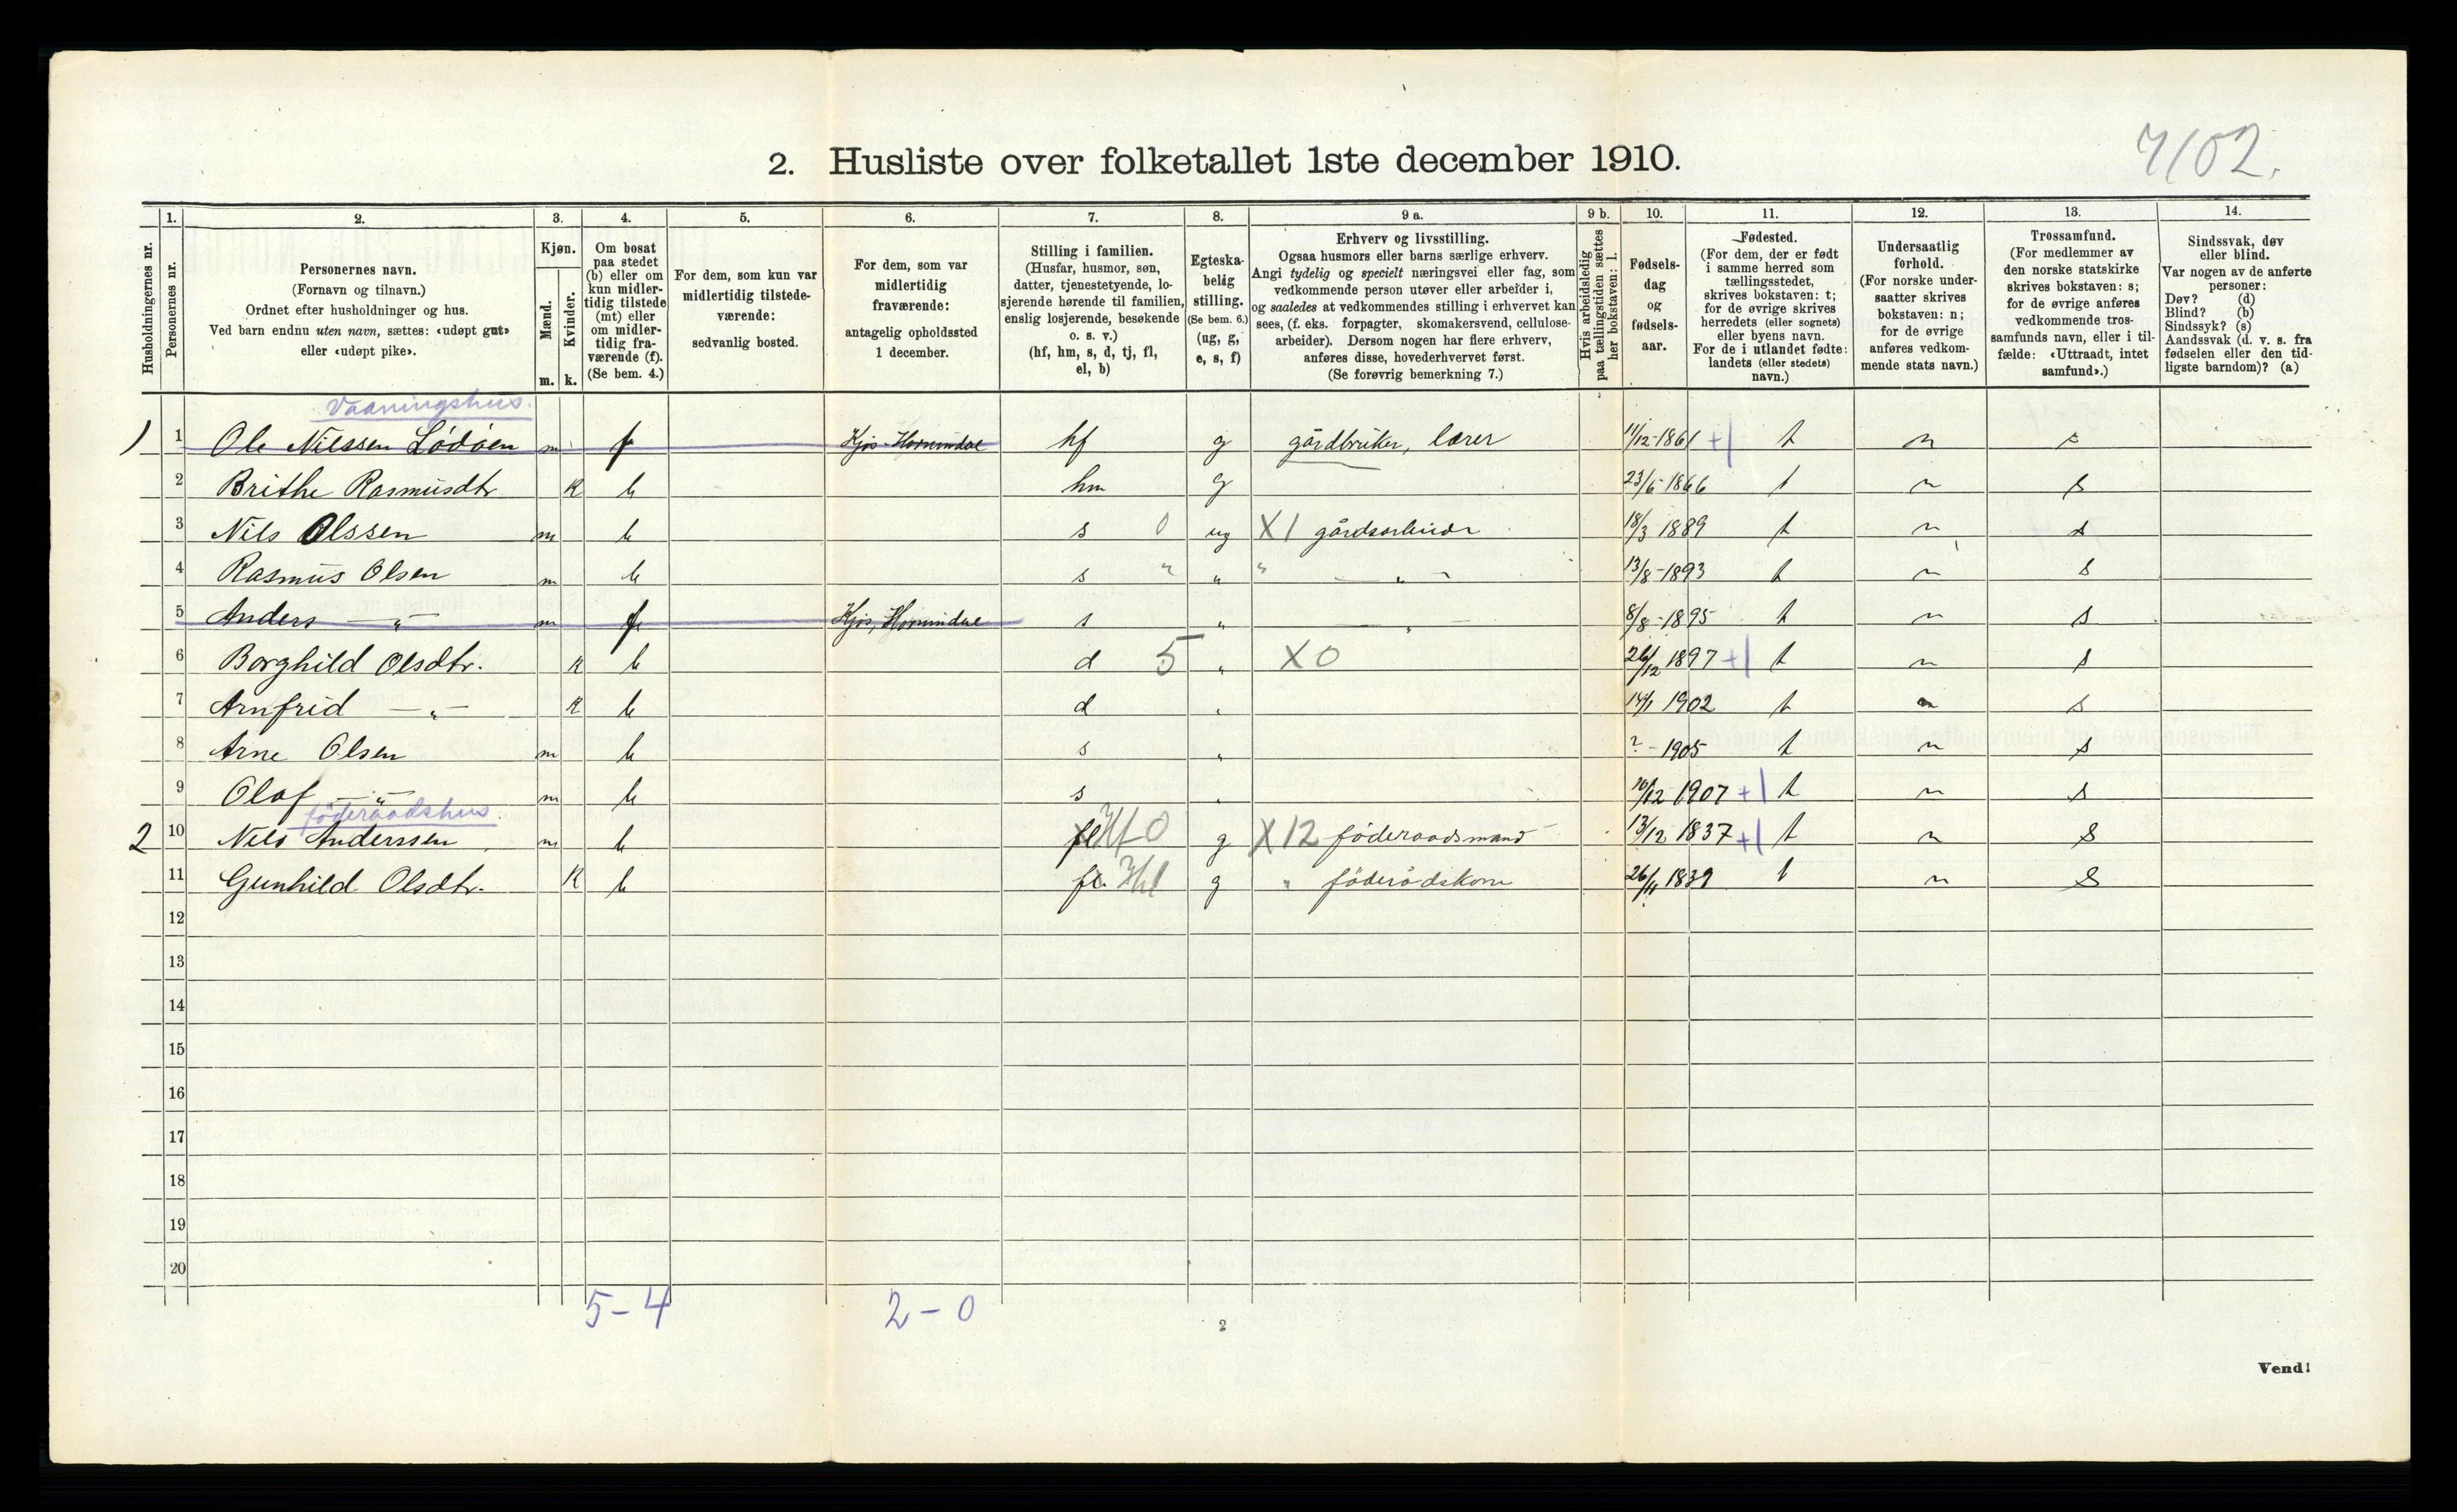 4102.
2. Husliste over folketallet 1ste december 1910.
Husholdningernes nr.
1. Personernes nr.
2. Personernes navn. (Fornavn og tilnavn.) Ordnet efter husholdninger og hus. Ved barn endnu uten navn, sættes: «udøpt gut» eller «udøpt pike».
3. Kjøn. Mænd. m. Kvinder. k.
4. Om bosat paa stedet (b) eller om kun midlertidig tilstede (mt) eller om midlertidig fraværende (f). (Se bem. 4.)
5. For dem, som kun var midlertidig tilstedeværende: sedvanlig bosted.
6. For dem, som var midlertidig fraværende: antagelig opholdssted 1 december.
7. Stilling i familien. (Husfar, husmor, søn, datter, tjenestetyende, losjerende hørende til familien, enslig losjerende, besøkende o. s. v.) (hf, hm, s, d, tj, fl, el, b)
8. Egteskabelig stilling. (Se bem. 6.) (ug, g, e, s, f)
9 a. Erhverv og livsstilling. Ogsaa husmors eller barns særlige erhverv. Angi tydelig og specielt næringsvei eller fag, som vedkommende person utøver eller arbeider i, og saaledes at vedkommendes stilling i erhvervet kan sees, (f. eks. forpagter, skomakersvend, cellulosearbeider). Dersom nogen har flere erhverv, anføres disse, hovederhvervet først. (Se forøvrig bemerkning 7.)
9 b. Hvis arbeidsledig paa tællingstiden sættes her bokstaven: l.
10. Fødselsdag og fødselsaar.
11. Fødested. (For dem, der er født i samme herred som tællingsstedet, skrives bokstaven: t; for de øvrige skrives herredets (eller sognets) eller byens navn. For de i utlandet fødte: landets (eller stedets) navn.)
12. Undersaatlig forhold. (For norske undersaatter skrives bokstaven: n; for de øvrige anføres vedkommende stats navn.)
13. Trossamfund. (For medlemmer av den norske statskirke skrives bokstaven: s; for de øvrige anføres vedkommende trossamfunds navn, eller i tilfælde: «Uttraadt, intet samfund».)
14. Sindssvak, døv eller blind. Var nogen av de anførte personer: Døv? (d) Blind? (b) Sindssyk? (s) Aandssvak (d. v. s. fra fødselen eller den tidligste barndom)? (a)
Vaaningshus.
1) 1 Ole Nilssen Lødøen m f Kjøs-Hornindal hf g gårdbruker, lærer 11/12-1861 +1 t n s
2 Brithe Rasmusdtr k b hm g 23/6-1866 t n s
3 Nils Olssen m b s 0 ug X1 gårdsarbeider 18/3 1889 t n s
4 Rasmus Olsen m b s " " " —"— 13/8-1893 t n s
5 Anders —"— m f Kjøs, Hornindal s " —"— 8/8-1895 t n s
6 Borghild Olsdtr. k b d 5 " X0 26/12 1897 +1 t n s
7 Arnfrid —"— k b d " 14/1 1902 t n s
8 Arne Olsen m b s " ? - 1905 t n s
9 Olaf —"— m b s " 10/12 1907 +1 t n s
føderaadshus.
2 10 Nils Anderssen m b fl Hf 0 g X12 føderaadsmand 13/12 1837 +1 t n s
11 Gunhild Olsdtr. k b fl. g " føderådskone 26/11 1839 t n s
12
13
14
15
16
17
18
19
20
5-4 2-0
2
Vend!